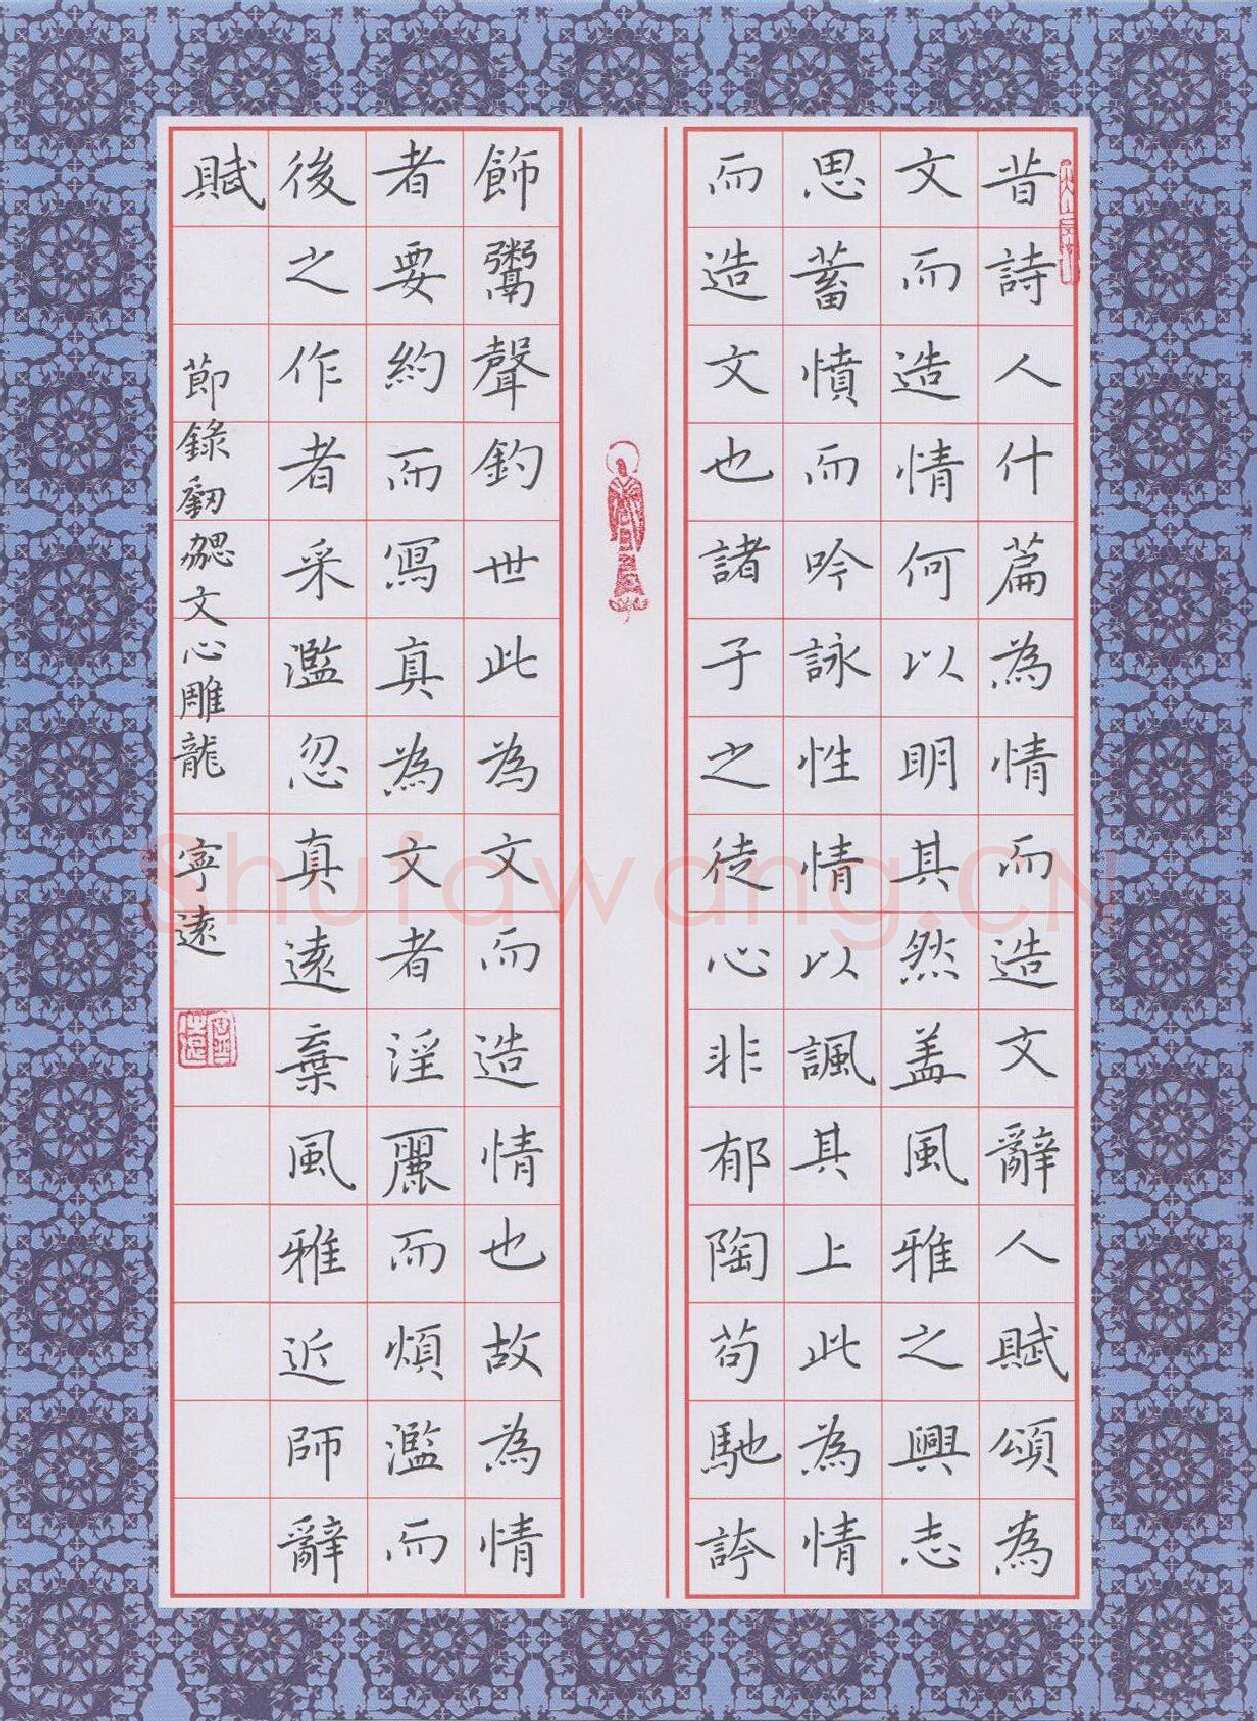 昔詩人什篇為情而造文辭人賦頌為
文而造情何以明其然盖風雅之興志
思蓄憤而吟詠性情以諷其上此為情
而造文也諸子之徒心非郁陶苟馳誇
飾鬻聲釣世此為文而造情也故為情
者要約而寫真為文者淫麗而煩濫而
後之作者采濫忽真遠棄風雅近師辭
賦
節錄劉勰文心雕龍 寧遠
Shufawang.CN